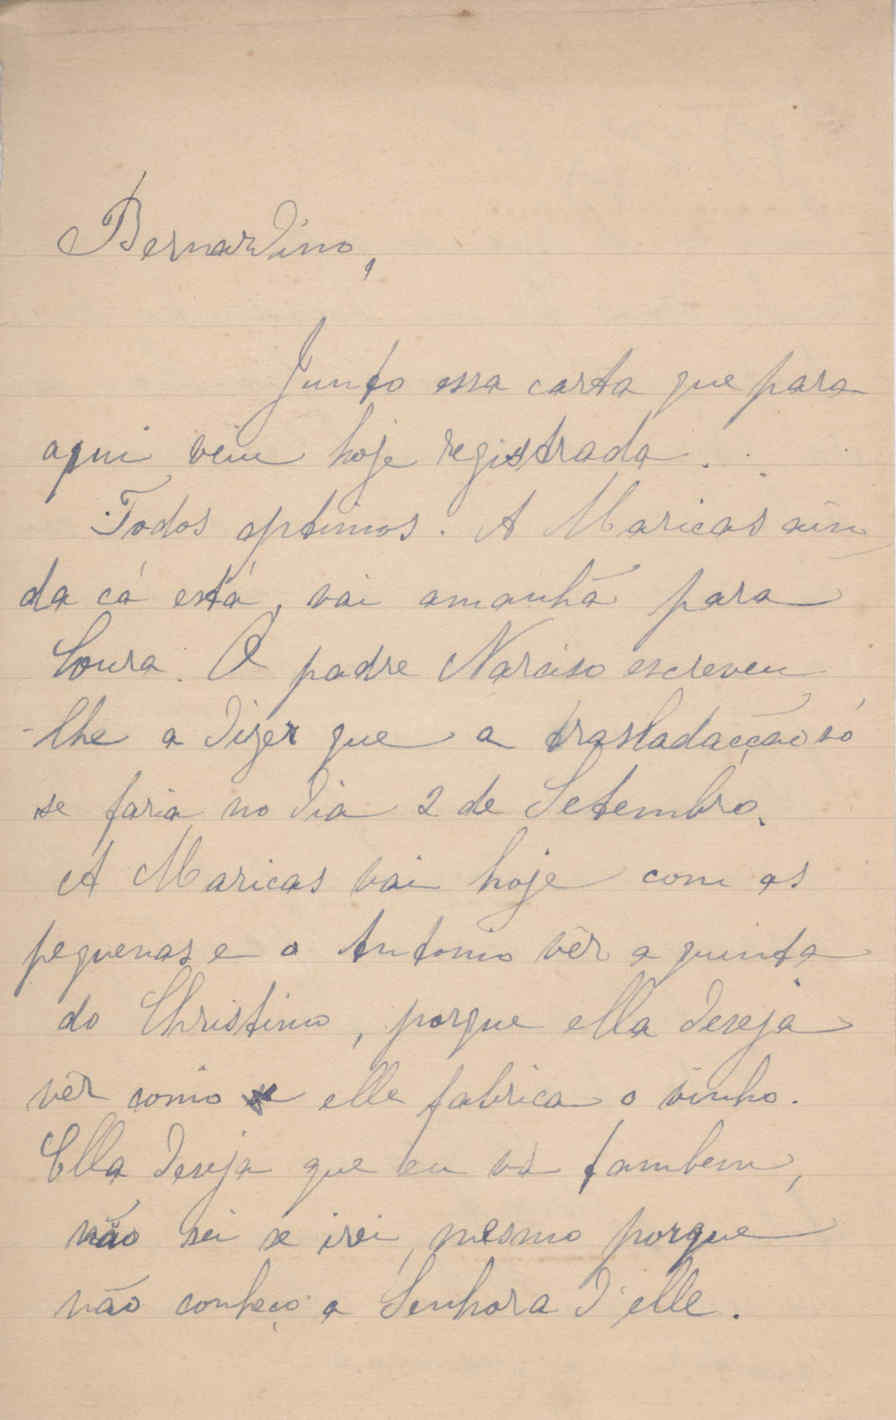 Bernardino,
Junto essa carta que para
aqui veiu hoje registrada.
Todos optimos. A Maricas ain
da cá está, vai amanhã para
Loura. O padre Narciso escreveu
-lhe a dizer que a trasladacção só
se faria no dia 2 de Setembro.
A Maricas vai hoje com as
pequenas e o Antonio vêr a quinta
do Christino, porque ella deseja
vêr como elle fabrica o vinho.
Ella deseja que eu vá tambem,
não sei se irei, mesmo porque
não conheço a Senhora d'elle.